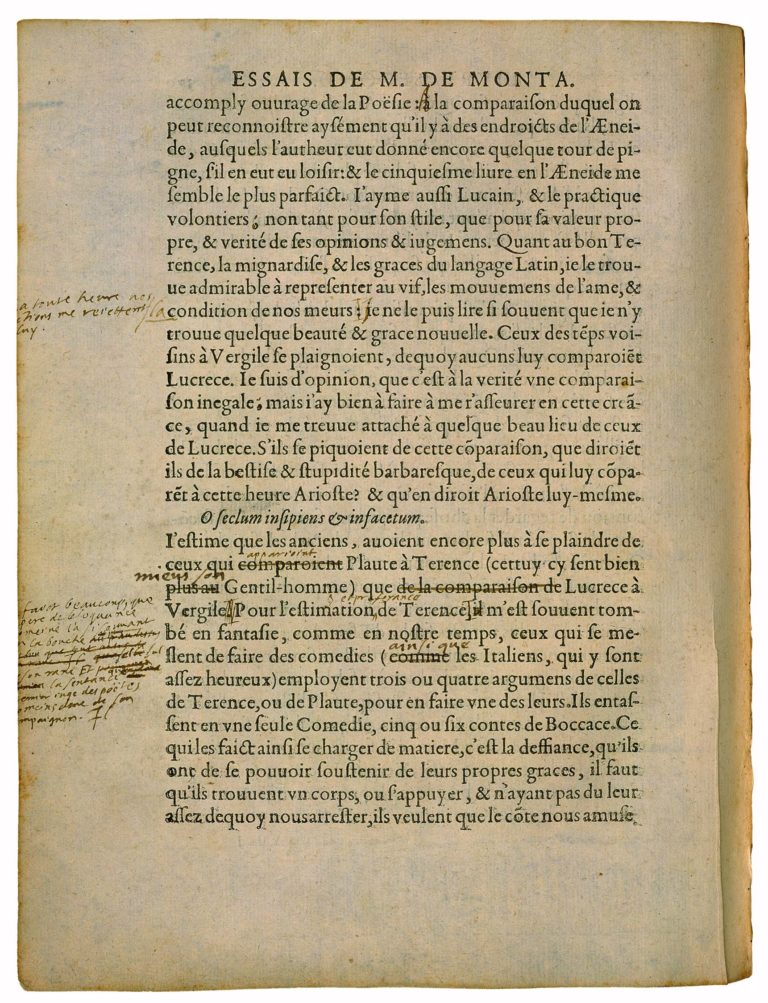 ESSAIS DE M. DE MONTA.
accomply ouurage de la Poësie: A la comparaiſon duquel on
peut reconnoiſtre ayſément qu'il y à des endroicts de l'Ænei-
de, auſquels l'autheur eut donné encore quelque tour de pi-
gne, ſ'il en eut eu loiſir: & le cinquieſme liure en l'Æneide me
ſemble le plus parfaict. I'ayme auſſi Lucain, & le practique
volontiers; non tant pour ſon ſtile, que pour ſa valeur pro-
pre, & verité de ſes opinions & iugemens. Quant au bon Te-
rence, la mignardiſe, & les graces du langage Latin, ie le trou-
ue admirable à repreſenter au vif, les mouuemens de l'ame, &
la
condition de nos meurs: ie ne le puis lire ſi ſouuent que ie n'y
a toute heure nos
tions me reiettent
luy.
trouue quelque beauté & grace nouuelle. Ceux des tẽps voi-
ſins à Vergile ſe plaignoient, dequoy aucuns luy comparoiẽt
Lucrece. Ie ſuis d'opinion, que c'eſt à la verité vne comparai-
ſon inegale; mais i'ay bien à faire à me r'aſſeurer en cette creã-
ce, quand ie me treuue attaché à quelque beau lieu de ceux
de Lucrece. S'ils ſe piquoient de cette cõparaiſon, que diroiẽt
ils de la beſtiſe & ſtupidité barbareſque, de ceux qui luy cõpa-
rẽt à cette heure Arioſte? & qu'en diroit Arioſte luy-meſme.
O ſeclum inſipiens & infacetum.
I'eſtime que les anciens, auoient encore plus à ſe plaindre de
apparioint
ceux qui comparoient Plaute à Terence (cettuy cy ſent bien
mieus son
plus au Gentil-homme) que de la comparaiſon de Lucrece à
et preferance
Vergile Pour l'eſtimation de Terence, il m'eſt ſouuent tom-
faict beaucoup, que
pere de l'eloquance
la bouche
la sentance
iuge des poëtes
de son
compaignon.
bé en fantaſie, comme en noſtre temps, ceux qui ſe me-
ainsi que
ſlent de faire des comedies (comme les Italiens, qui y ſont
aſſez heureux) employent trois ou quatre argumens de celles
de Terence, ou de Plaute, pour en faire vne des leurs. Ils entaſ-
ſent en vne ſeule Comedie, cinq ou ſix contes de Boccace. Ce
qui les faict ainſi ſe charger de matiere, c'eſt la deffiance, qu'ils
ont de ſe pouuoir ſouſtenir de leurs propres graces, il faut
qu'ils trouuent vn corps, ou s'appuyer, & n'ayant pas du leur
aſſez dequoy nous arreſter, ils veulent que le cõte nous amuſe.